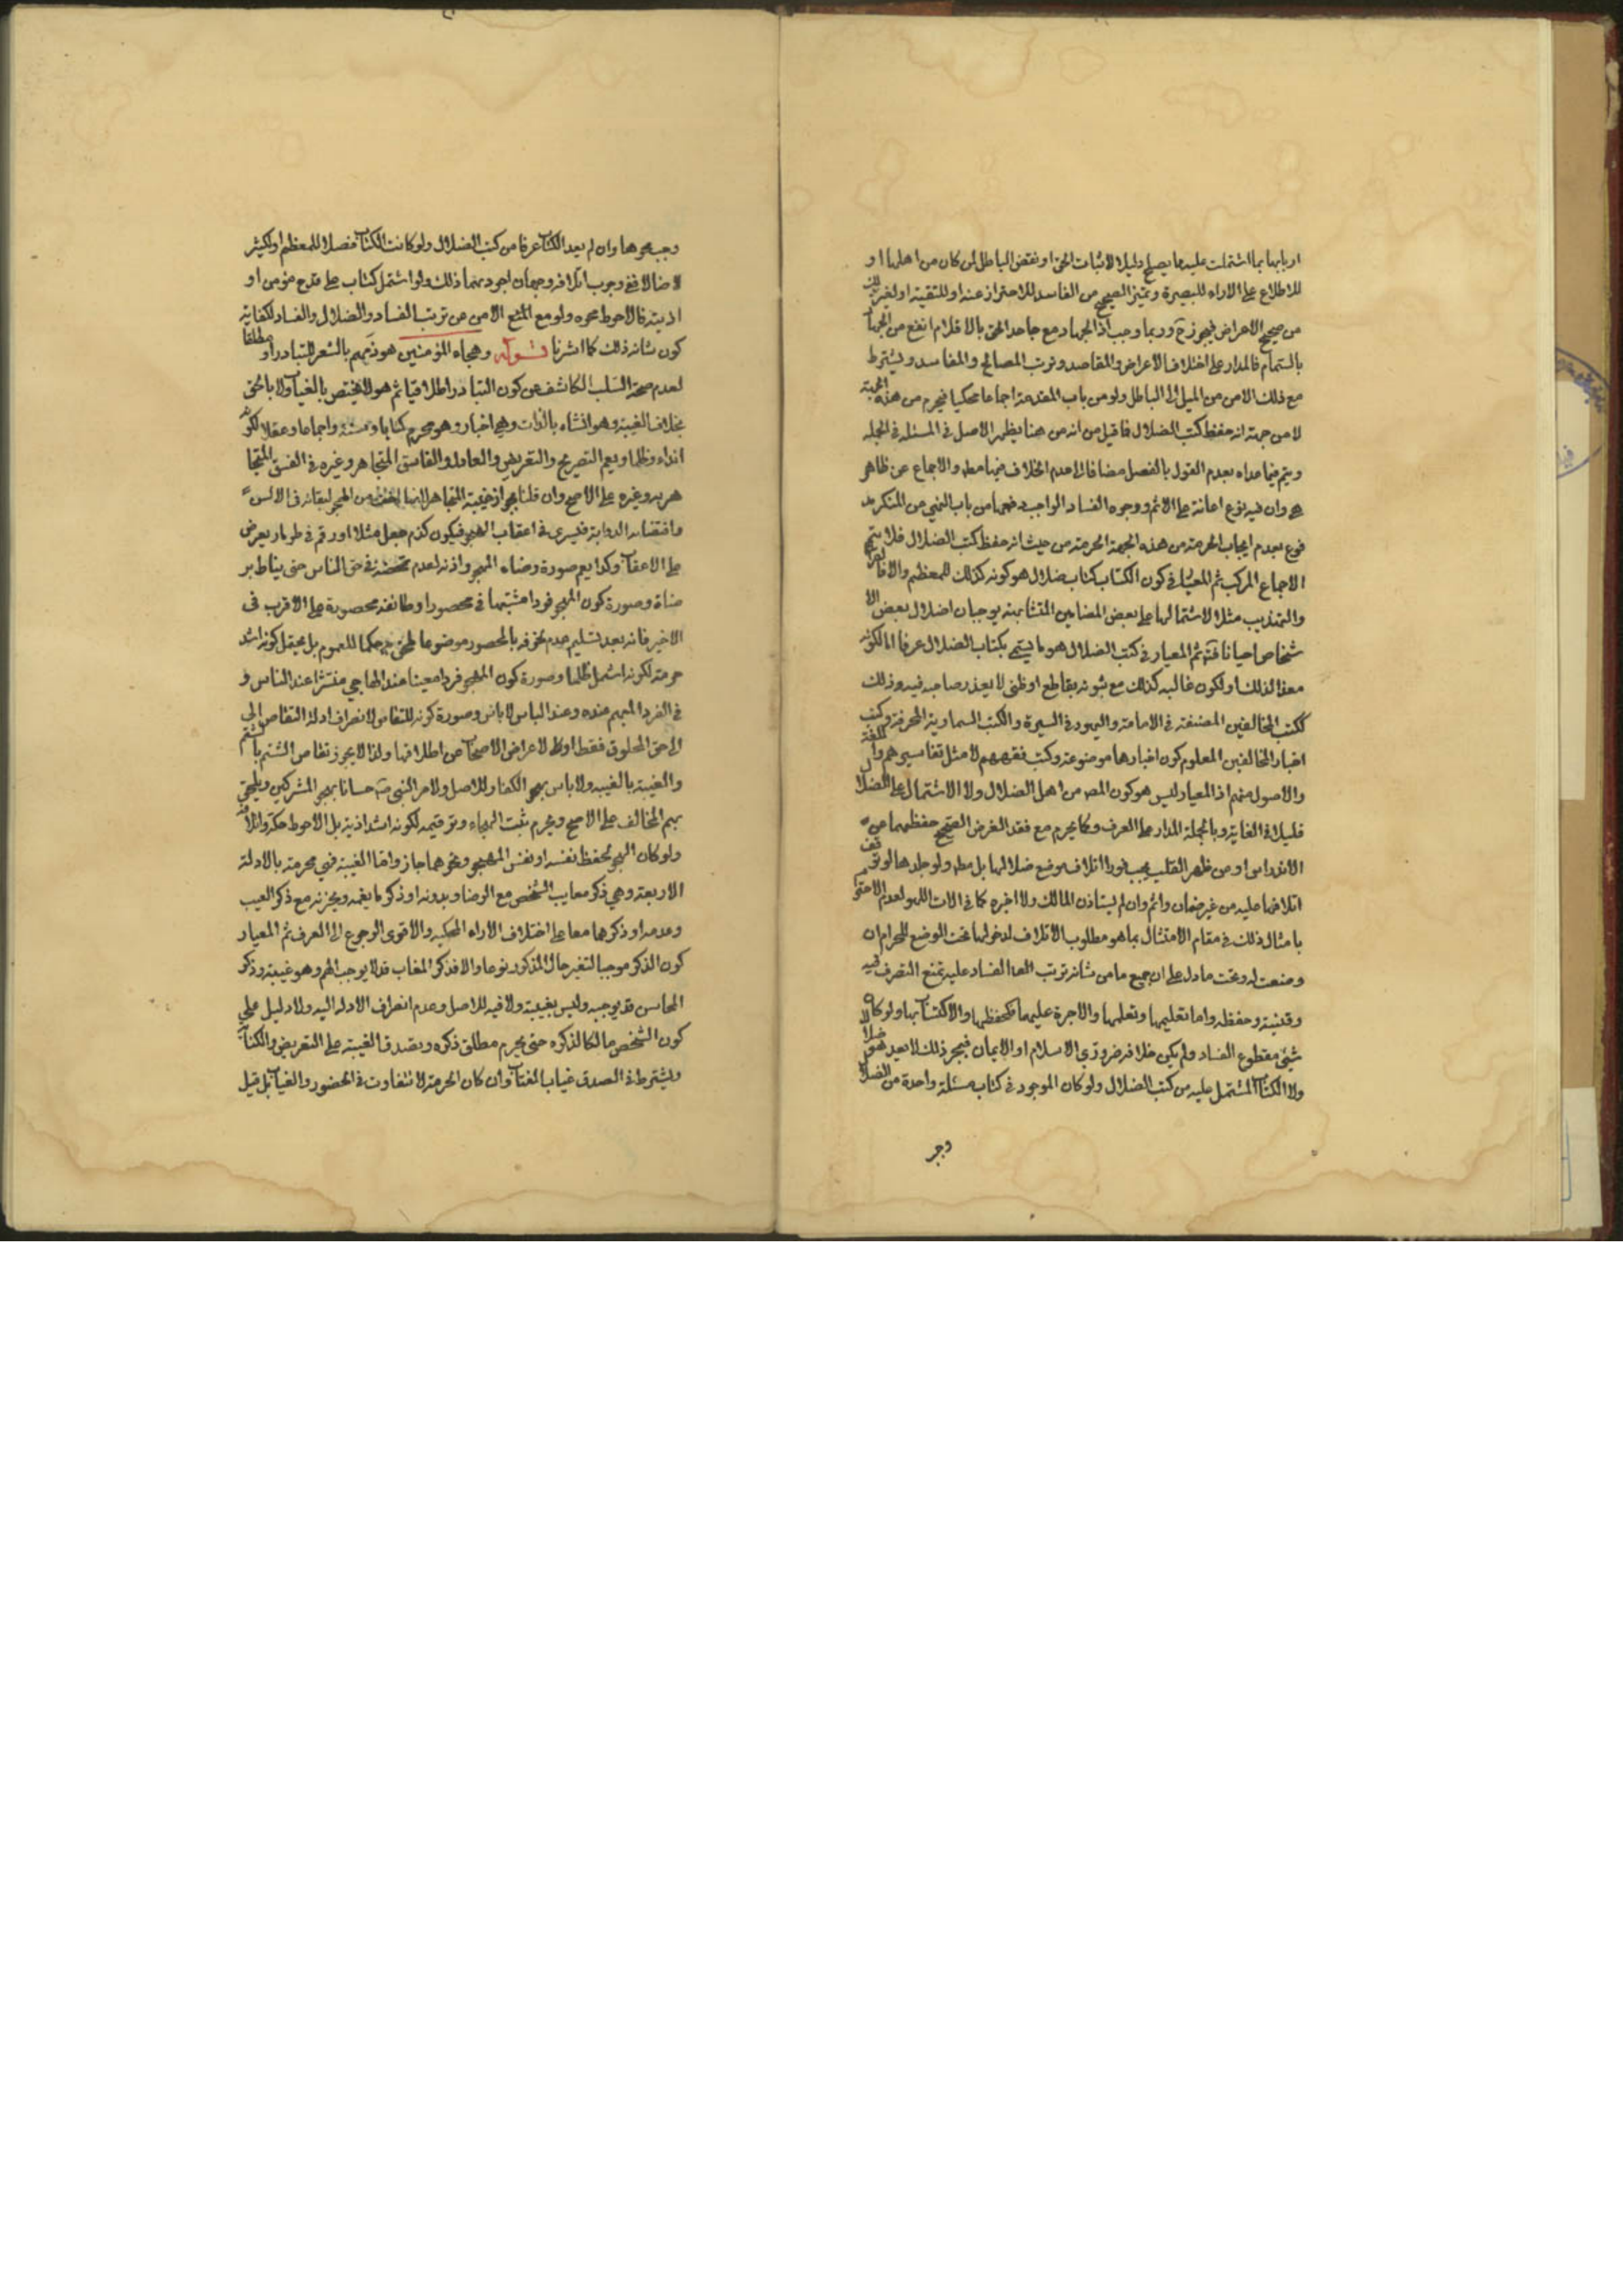 اربابها بما اشتملت عليه ما يصلح دليلا لاثبات الحق او نقض الباطل لمن كان من اهلها او
للاطلاع على الاراء للبصيرة وتميز الصحيح من الفاسد للاحتراز عنه او للتقية او لغير ذلك
من صحيح الاعراض فيجوز ح وربما وجب اذ الجهاد مع جاحد الحق بالاقلام انفع من الجهاد
بالسهام فالمدار على اختلاف الاعراض والمقاصد وترتب المصالح والمفاسد ويشترط
مع ذلك الامن من الميل الى الباطل ولو من باب المقدمة اجماعا محكيا فيحرم من هذه الجهة
لا من جهة انه حفظ كتب الضلال فما قيل من انه من هنا يظهر الاصل في المسئلة في الجملة
ويتم فيما عداه بعدم القول بالفصل مضافا الى عدم الخلاف فيها والاجماع عن ظاهر
وان فيه نوع اعانة على الاثم ووجوه الفساد الواجب دفعها من باب النهي عن المنكر
فوع بعدم ايجاب الحرمة من هذه الجهة الحرمة من حيث انه حفظ كتب الضلال فلا يتم
الاجماع المركب ثم المعيار في كون الكتاب كتاب ضلال هو كونه كذلك للمعظم والا فالقران
والتهذيب مثلا لاشتمالها على بعض المضامين المتشابهة يوجبان اضلال بعض الا
شخاص احيانا فتم ثم المعيار في كتب الضلال هو ما يسمى بكتاب الضلال عرفا اما لكونه
معدا لذلك او لكون غالبه كذلك مع ثبوته بقاطع او ظني لا يعذر صاحبه فيه وذلك
ككتب المخالفين المصنفة في الامامة واليهود في السيرة والكتب السماوية المحرفة وكتب
اخبار المخالفين المعلوم كون اخبارها موضوعة وكتب فقههم لا مثل تفاسيرهم واللغة
والاصول منهم اذ المعيار ليس هو كون المص من اهل الضلال ولا الاشتمال على الضلال
قليلا في الغاية وبالجملة المدار على العرف وكما يحرم مع فقد الغرض الصحيح حفظها عن
الاندراس او من ظهر القلب يجب فورا اتلاف موضع ضلالها بل ولو جلدها لو توقف
اتلافها عليه من غير ضمان واثم وان لم يستاذن المالك ولا اخبره كما في الات اللهو لعدم الاحترام
بامثال ذلك في مقام الامتثال بما هو مطلوب الاتلاف لدخولها تحت الوضع للحرام ان
وضعت له وتحت ما دل على ان جميع ما من شانه ترتب الفساد عليه تمنع التصرف فيه
وقنيته وحفظه واما تعليمها وتعلمها والاجرة عليهما فكحفظها والاكتساب بها ولو كان
شيئ مقطوع الفساد ولم يكن خلافه ضروري الاسلام او الايمان فبمجرد ذلك لا يعد هو ضلالا
ولا الكتاب المشتمل عليه من كتب الضلال ولو كان الموجود في كتاب مسئلة واحدة من الضلال
وجب
وجب محوها وان لم يعد الكتاب عرفا من كتب الضلال ولو كانت الكتاب مضلا للمعظم او لكثير
لا ضالا ففي وجوب اتلافه وجهان اجودهما ذلك ولو اشتمل كتاب على قدح مؤمن او
اذيته فالاحوط محوه ولو مع الامن من ترتب الفساد والضلال والفساد لكفاية
كون شانه ذلك كما اشرنا قوله وهجاء المؤمنين هو ذمهم بالشعر للتبادر او مطلقا
لعدم صحة السلب الكاشف عن كون التبادر اطلاقيا ثم هو لا يختص بالغياب ولا بالحق
بخلاف الغيبة وهو انشاء بالذات وهي اخبار وهو محرم كتابا وسنة واجماعا وعقلا لكونه
ايذاء وظلما ويعم التصريح والتعريض والعادل والفاسق المتجاهر وغيره في الفسق المتجا
هر به وغيره على الاصح وان قلنا بجواز غيبة المتجاهر لانها اخف من الهجو لبقائه في الالسن
واقتضائه الدوابة فيسري في اعقاب المهجو فيكون كذم جعل مثلا او رقم في طومار يعرض
على الاعقاب وكذا يعم صورة رضاء المهجو واذنه لعدم تمحضه في حق الناس حتى يناط بر
ضاه وصورة كون المهجو فردا مشتبها في محصور او طائفة محصورة على الاقرب في
الاخير فانه بعد تسليم عدم بالمحصور موضوعا حكما للعموم بل يعقل كونه اشد
حرمة لكونه اشمل ظلما وصورة كون المهجو فردا معينا عند الهاجي عند الناس و
في الفرد المبهم عنده وعند الناس لا باس وصورة كونه للتقاص لانصراف ادلة التقاص الى
الى حق المخلوق فقط او الاعراض الاصحاب عن اطلاقها ولذا لا يجوز تقاص الشتم بالشتم
والغيبة بالغيبة ولا باس بهجو الكفار وللاصل ولامر النبي ص حسانا بهجو المشركين ويلحق
بهم المخالف على الاصح ويحرم ثبت الهجاء وترقيمه لكونه اشد اذية بل الاحوط حكه واتلافه
ولو كان الهجو لحفظ نفسه او نفس المهجو ونحوهما جاز واما الغيبة فهي محرمة بالادلة
الاربعة وهي ذكر معايب الشخص مع الرضا وبدونه او ذكر ما يغمه ويحزنه مع ذكر العيب
وعدمه او ذكرهما معا على اختلاف الاراء المحكية والاقوى الرجوع الى العرف ثم المعيار
كون الذكر موجبا لتغير حال المذكور نوعا والا فذكر المغاب قد لا يوجب الهم وهو غيبة وذكر
المحاسن قد يوجبه وليس بغيبة ولا فيه للاصل وعدم انصراف الادلة اليه ولا دليل على
كون الشخص مالكا لذكره حتى يحرم مطلق ذكره ويصدق الغيبة على التعريض والكتابة
ويشترط في الصدق غياب المغتاب وان كان الحرمة لا تتفاوت في الحضور والغياب بل قيل